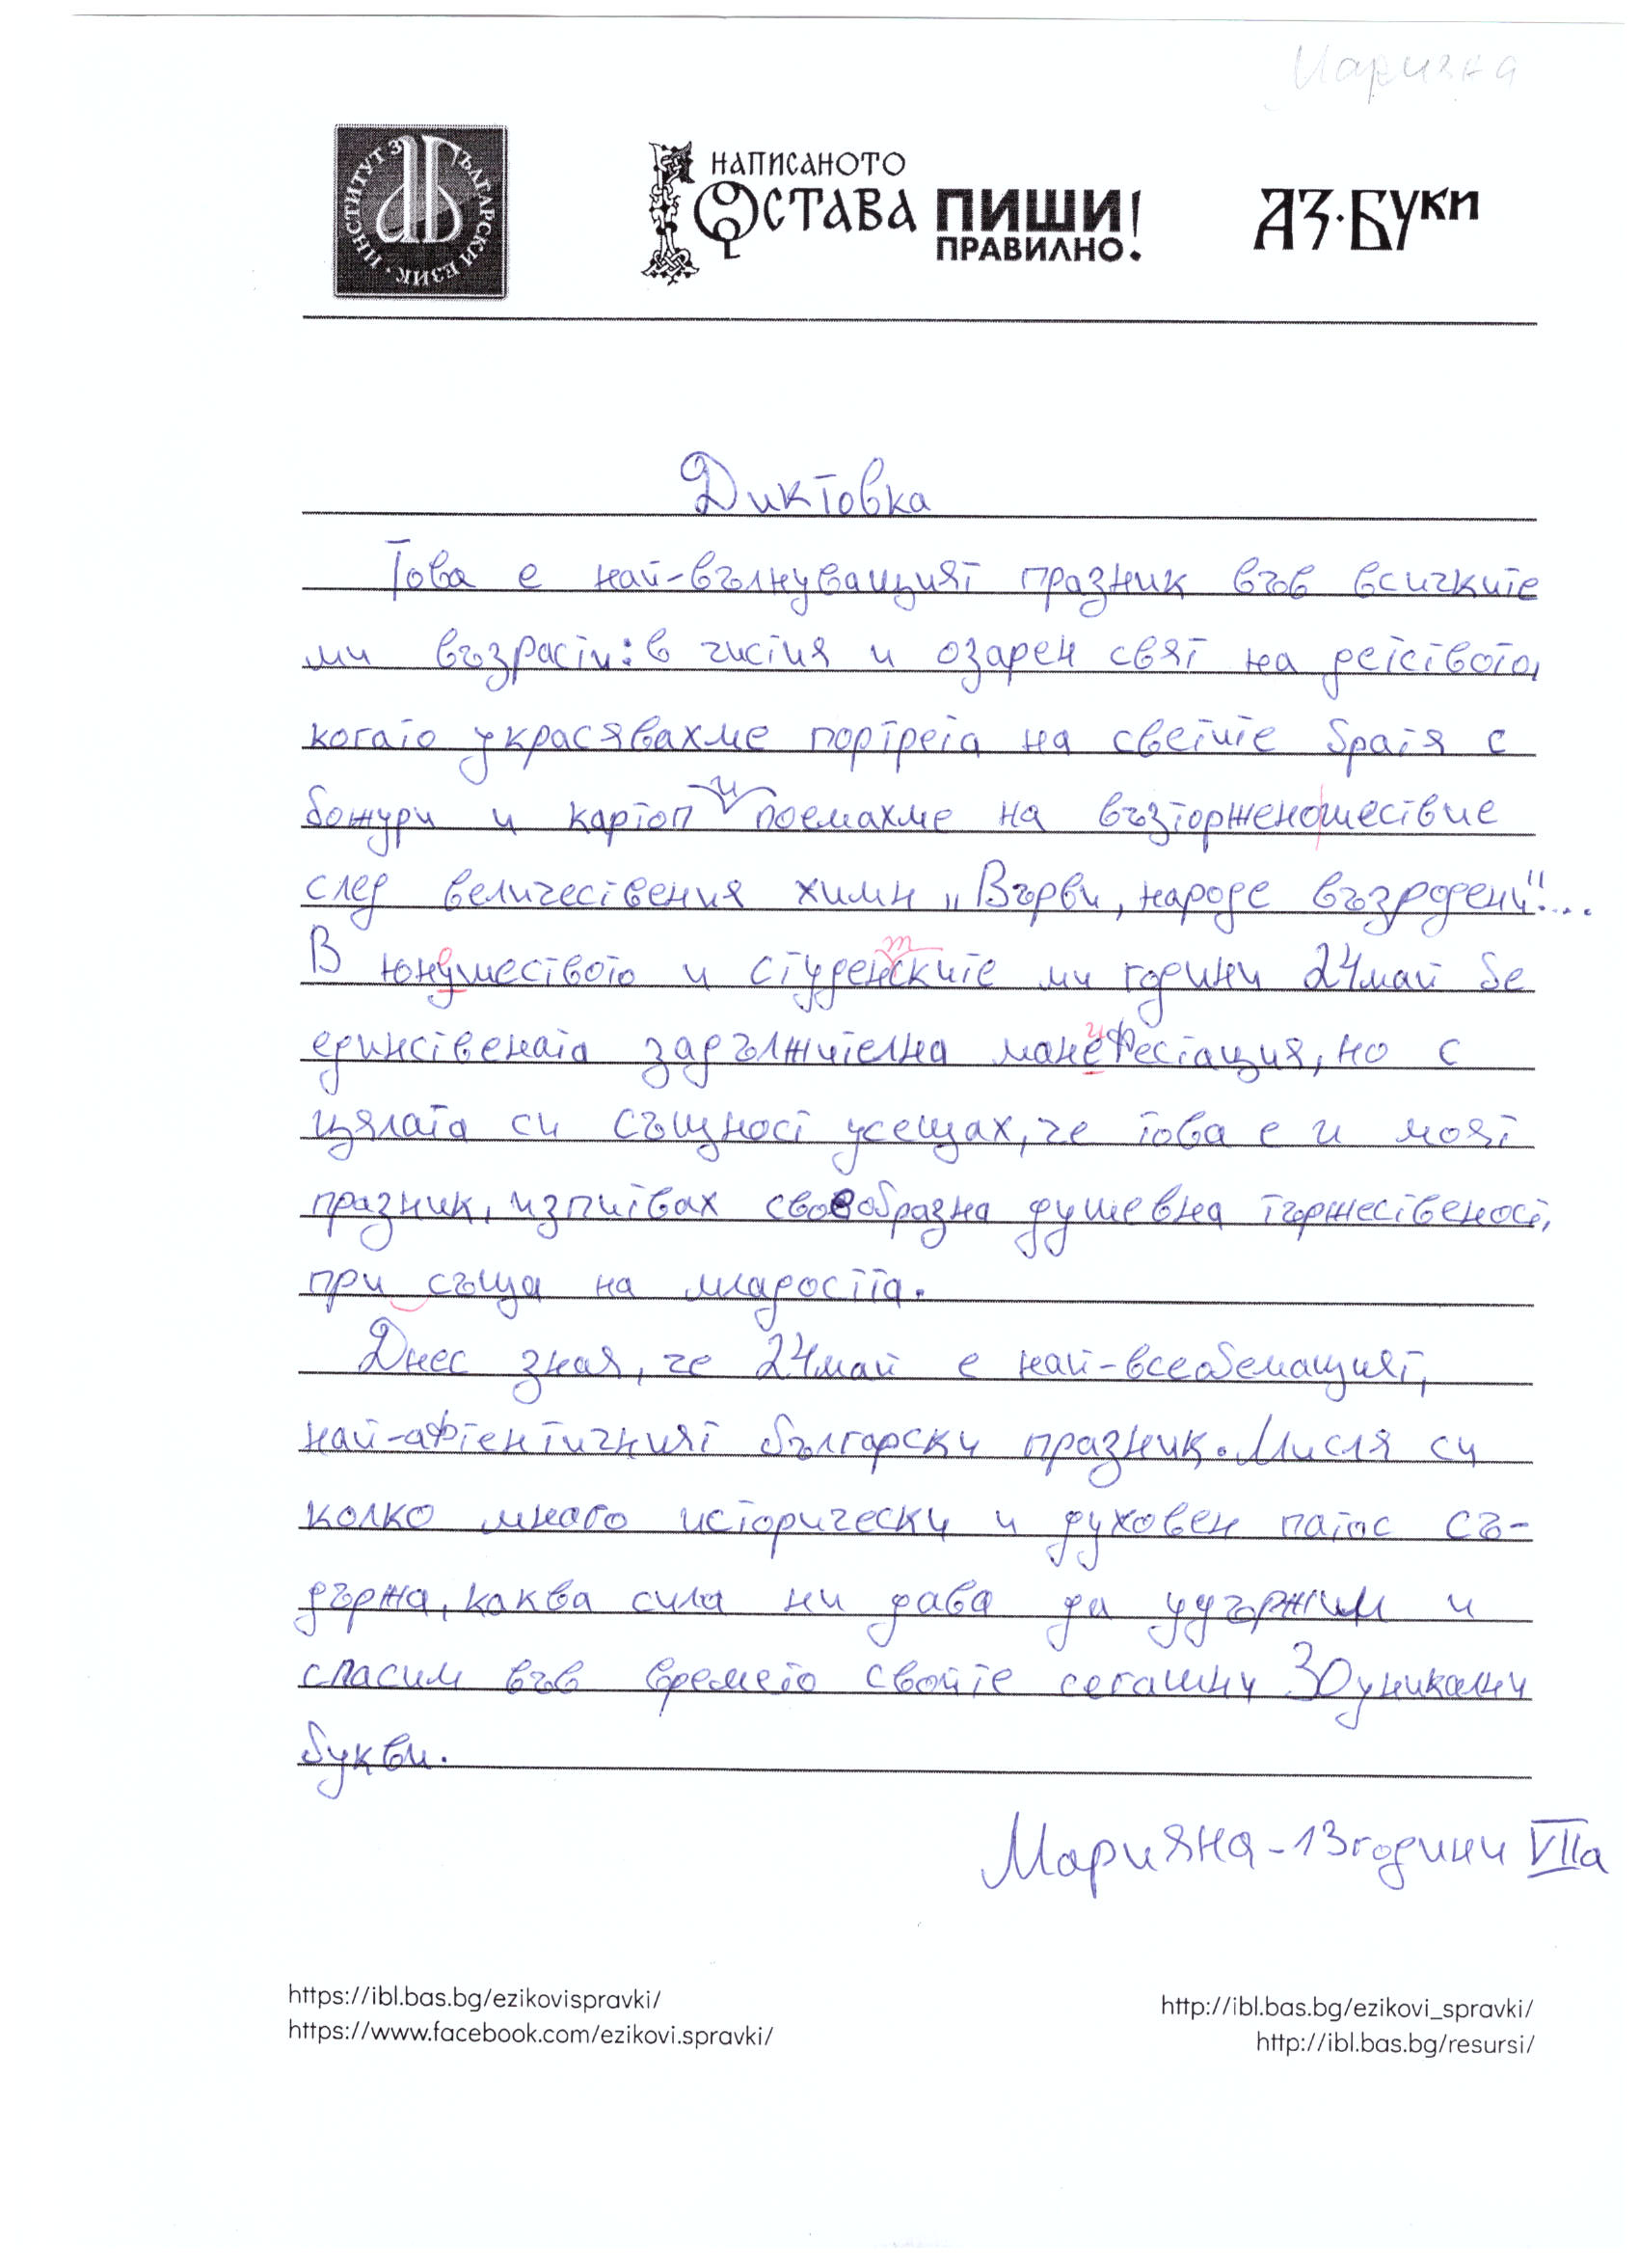 Марияна
ИНСТИТУТ ЗА БЪЛГАРСКИ ЕЗИК
НАПИСАНОТО
ОСТАВА ПИШИ
ПРАВИЛНО!
АЗ·БУКИ
Диктовка
Това е най-вълнуващият празник във всичките
ми възрасти: в чистия и озарен свят на детството,
когато украсявахме портрета на светите братя с
божури и картоп и поемахме на възторженошествие
след величествения химн „Върви, народе възродени"!...
В юнушеството и студенските ми години 24май бе
о
т
единствената задължителна манефестация, но с
и
цялата си същност усещах, че това е и моят
празник, изпитвах своеобразна душевна тържественост,
при съща на младостта.
Днес зная, че 24май е най-всеобемащият,
най-афтентичният български празник. Мисля си
колко много исторически и духовен патос съ-
държа, каква сила ни дава да удържим и
спасим във времето своите сегашни 30уникални
букви.
Марияна-13години VIIа
https://ibl.bas.bg/ezikovispravki/
https://www.facebook.com/ezikovi.spravki/
http://ibl.bas.bg/ezikovi_spravki/
http://ibl.bas.bg/resursi/